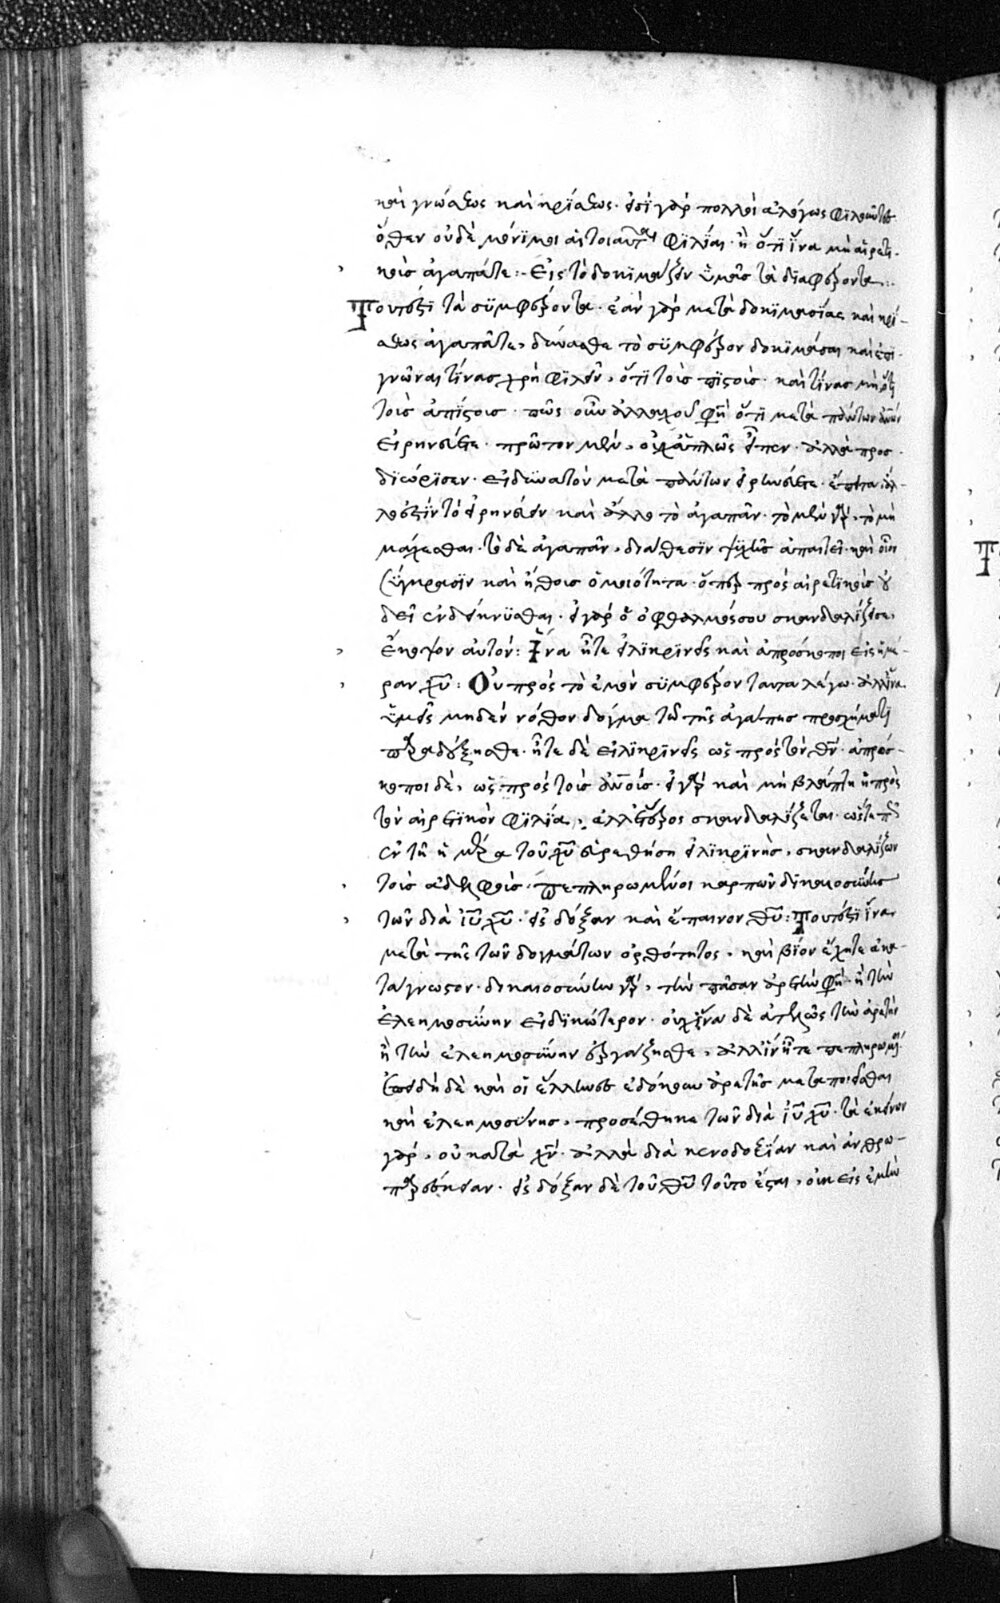 καὶ γνώσεως καὶ κρίσεως· εἰσὶ γὰρ πολλοὶ ἀλόγως φιλοῦντες
ὅθεν οὐδὲ μόνιμοι αἱ τοιαῦται φιλίαι· ἢ ὅτι ἵνα μὴ αἱρετι-
κοὺς ἀγαπᾶτε :- Εἰς τὸ δοκιμάζειν ὑμᾶς τὰ διαφέροντα :-
Τουτέστι τὰ συμφέροντα· ἐὰν γὰρ μετὰ δοκιμασίας καὶ κρί-
σεως ἀγαπᾶτε, δύνασθε τὸ συμφέρον δοκιμάσαι καὶ ἐπι-
γνῶναι τίνας χρὴ φιλεῖν, ὅτι τοὺς πιστούς· καὶ τίνας μὴ ὅτι
τοὺς ἀπίστους· πῶς οὖν ἀλλαχοῦ φησὶ ὅτι μετὰ πάντων ἀνων
εἰρηνεύετε· πρῶτον μὲν, οὐχ ἁπλῶς εἶπεν· ἀλλὰ προσ
διώρισεν· εἰ δυνατὸν μετὰ πάντων εἰρηνεύετε· ἔπειτα ἄλ-
λο ἐστὶν τὸ εἰρηνεύειν καὶ ἄλλο τὸ ἀγαπᾶν· τὸ μὲν γὰρ, τὸ μὴ
μάχεσθαι· τὸ δὲ ἀγαπᾶν, διάθεσιν ψυχῆς ἀπαιτεῖ· καὶ οἷον
σύγκρασιν καὶ ἤθους ὁμοιότητα· ὅπερ πρὸς αἱρετικοὺς οὐ
δεῖ ἐνδείκνυσθαι· εἰ γὰρ ὁ ὀφθαλμός σου σκανδαλίζει σε,
ἔκκοψον αὐτόν : Ἵνα ἦτε εἰλικρινεῖς καὶ ἀπρόσκοποι εἰς ἡμέ
ραν χυ : Οὐ πρὸς τὸ ἐμὸν συμφέρον ταῦτα λέγω· ἀλλ' ἵνα
ὑμεῖς μηδὲν νόθον δόγμα τῶ τῆς ἀγάπης προσχήματι
παραδέξησθε· ἦτε δὲ εἰλικρινεῖς ὡς πρὸς τὸν θν· ἀπρόσ-
κοποι δὲ, ὡς πρὸς τοὺς ἀνους· εἰ γὰρ καὶ μὴ βλάπτη ἡ πρὸς
τὸν αἱρετικὸν φιλία, ἀλλ' ἕτερος σκανδαλίζεται· ὥστε
ἐν τῆ ἡμέρα τοῦ χυ εὑρεθήση εἰλικρινὴς, σκανδαλίζων
τοὺς ἀδελφούς· Πεπληρωμένοι καρπῶν δικαιοσύνης
τῶν διὰ ιυ χυ· εἰς δόξαν καὶ ἔπαινον θυ : Τουτέστι ἵνα
μετὰ τῆς τῶν δογμάτων ὀρθότητος, καὶ βίον ἔχητε ἀκα-
τάγνωστον· δικαιοσύνην γὰρ, τὴν πᾶσαν ἀρετὴν φησὶ· ἢ τὴν
ἐλεημοσύνην εἰδικώτερον· οὐχ ἵνα δὲ ἁπλῶς τὴν ἀρετὴν
ἢ τὴν ἐλεημοσύνην ἐργάζησθε, ἀλλ' ἵν' ἦτε πεπληρωμένοι·
ἐπειδὴ δὲ καὶ οἱ ἕλληνες ἐδόκουν ἀρετῆς μεταποιεῖσθαι
καὶ ἐλεημοσύνης, προσέθηκε τῶν διὰ ιυ χυ· τὰ ἐκείνων
γὰρ, οὐ κατὰ χν· ἀλλὰ διὰ κενοδοξίαν καὶ ἀνθρω-
παρέσκειαν· εἰς δόξαν δὲ τοῦ θυ τοῦτο ἔσται, οὐκ εἰς ἐμὴν